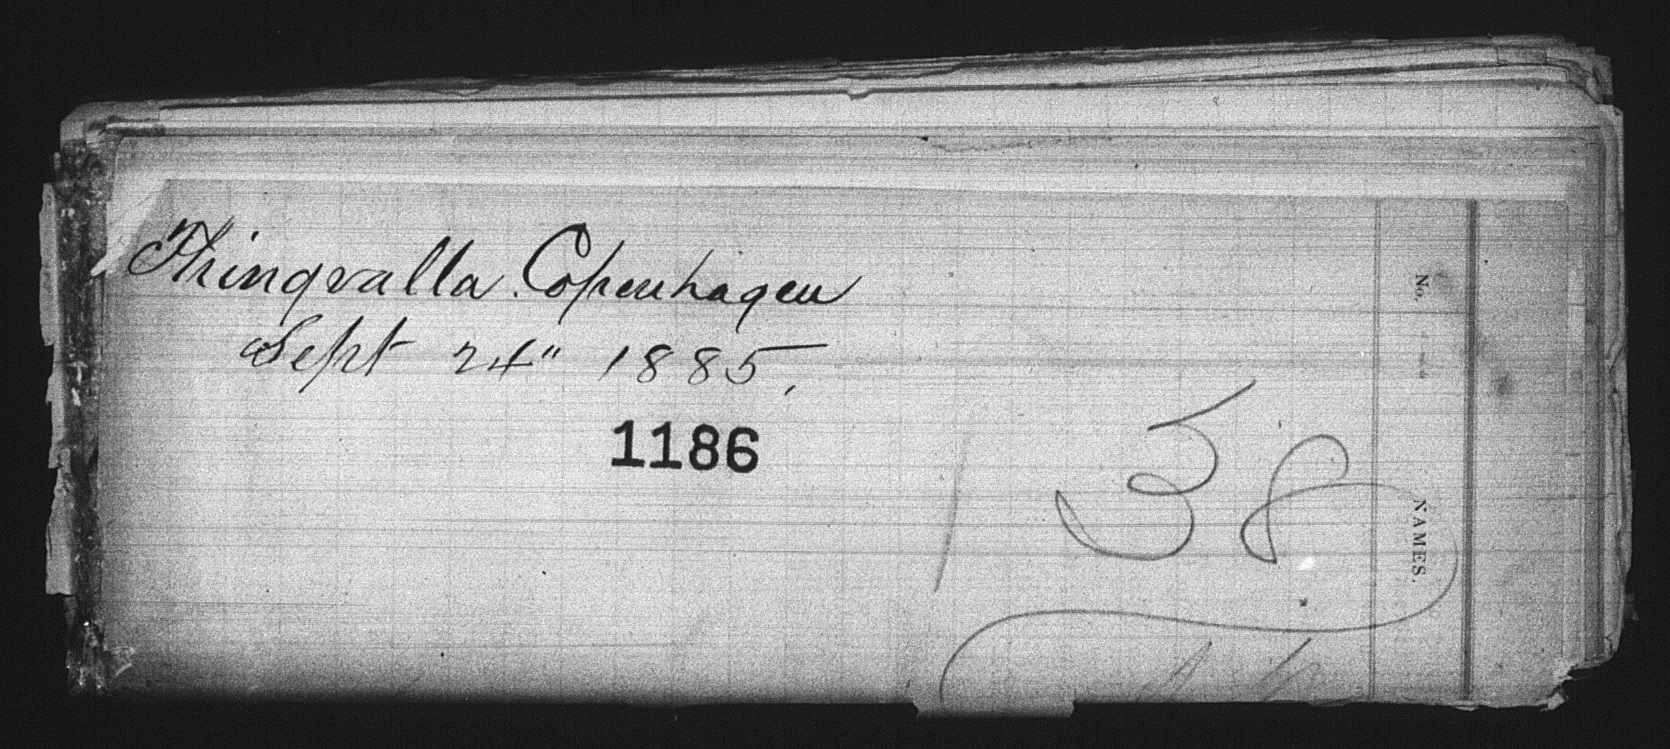 Thingvalla. Copenhagen
Sept 24" 1885,
1186
138
No.
NAMES.